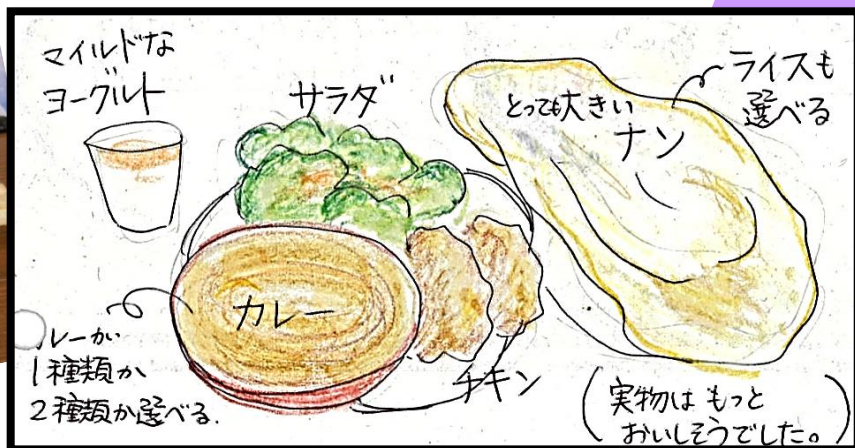 マイルドな
ヨーグルト
サラダ
とっても大きい
ナン
ライスも
選べる
カレー
ルーが
1種類か
2種類か選べる.
チキン
(実物は もっと
おいしそうでした。)